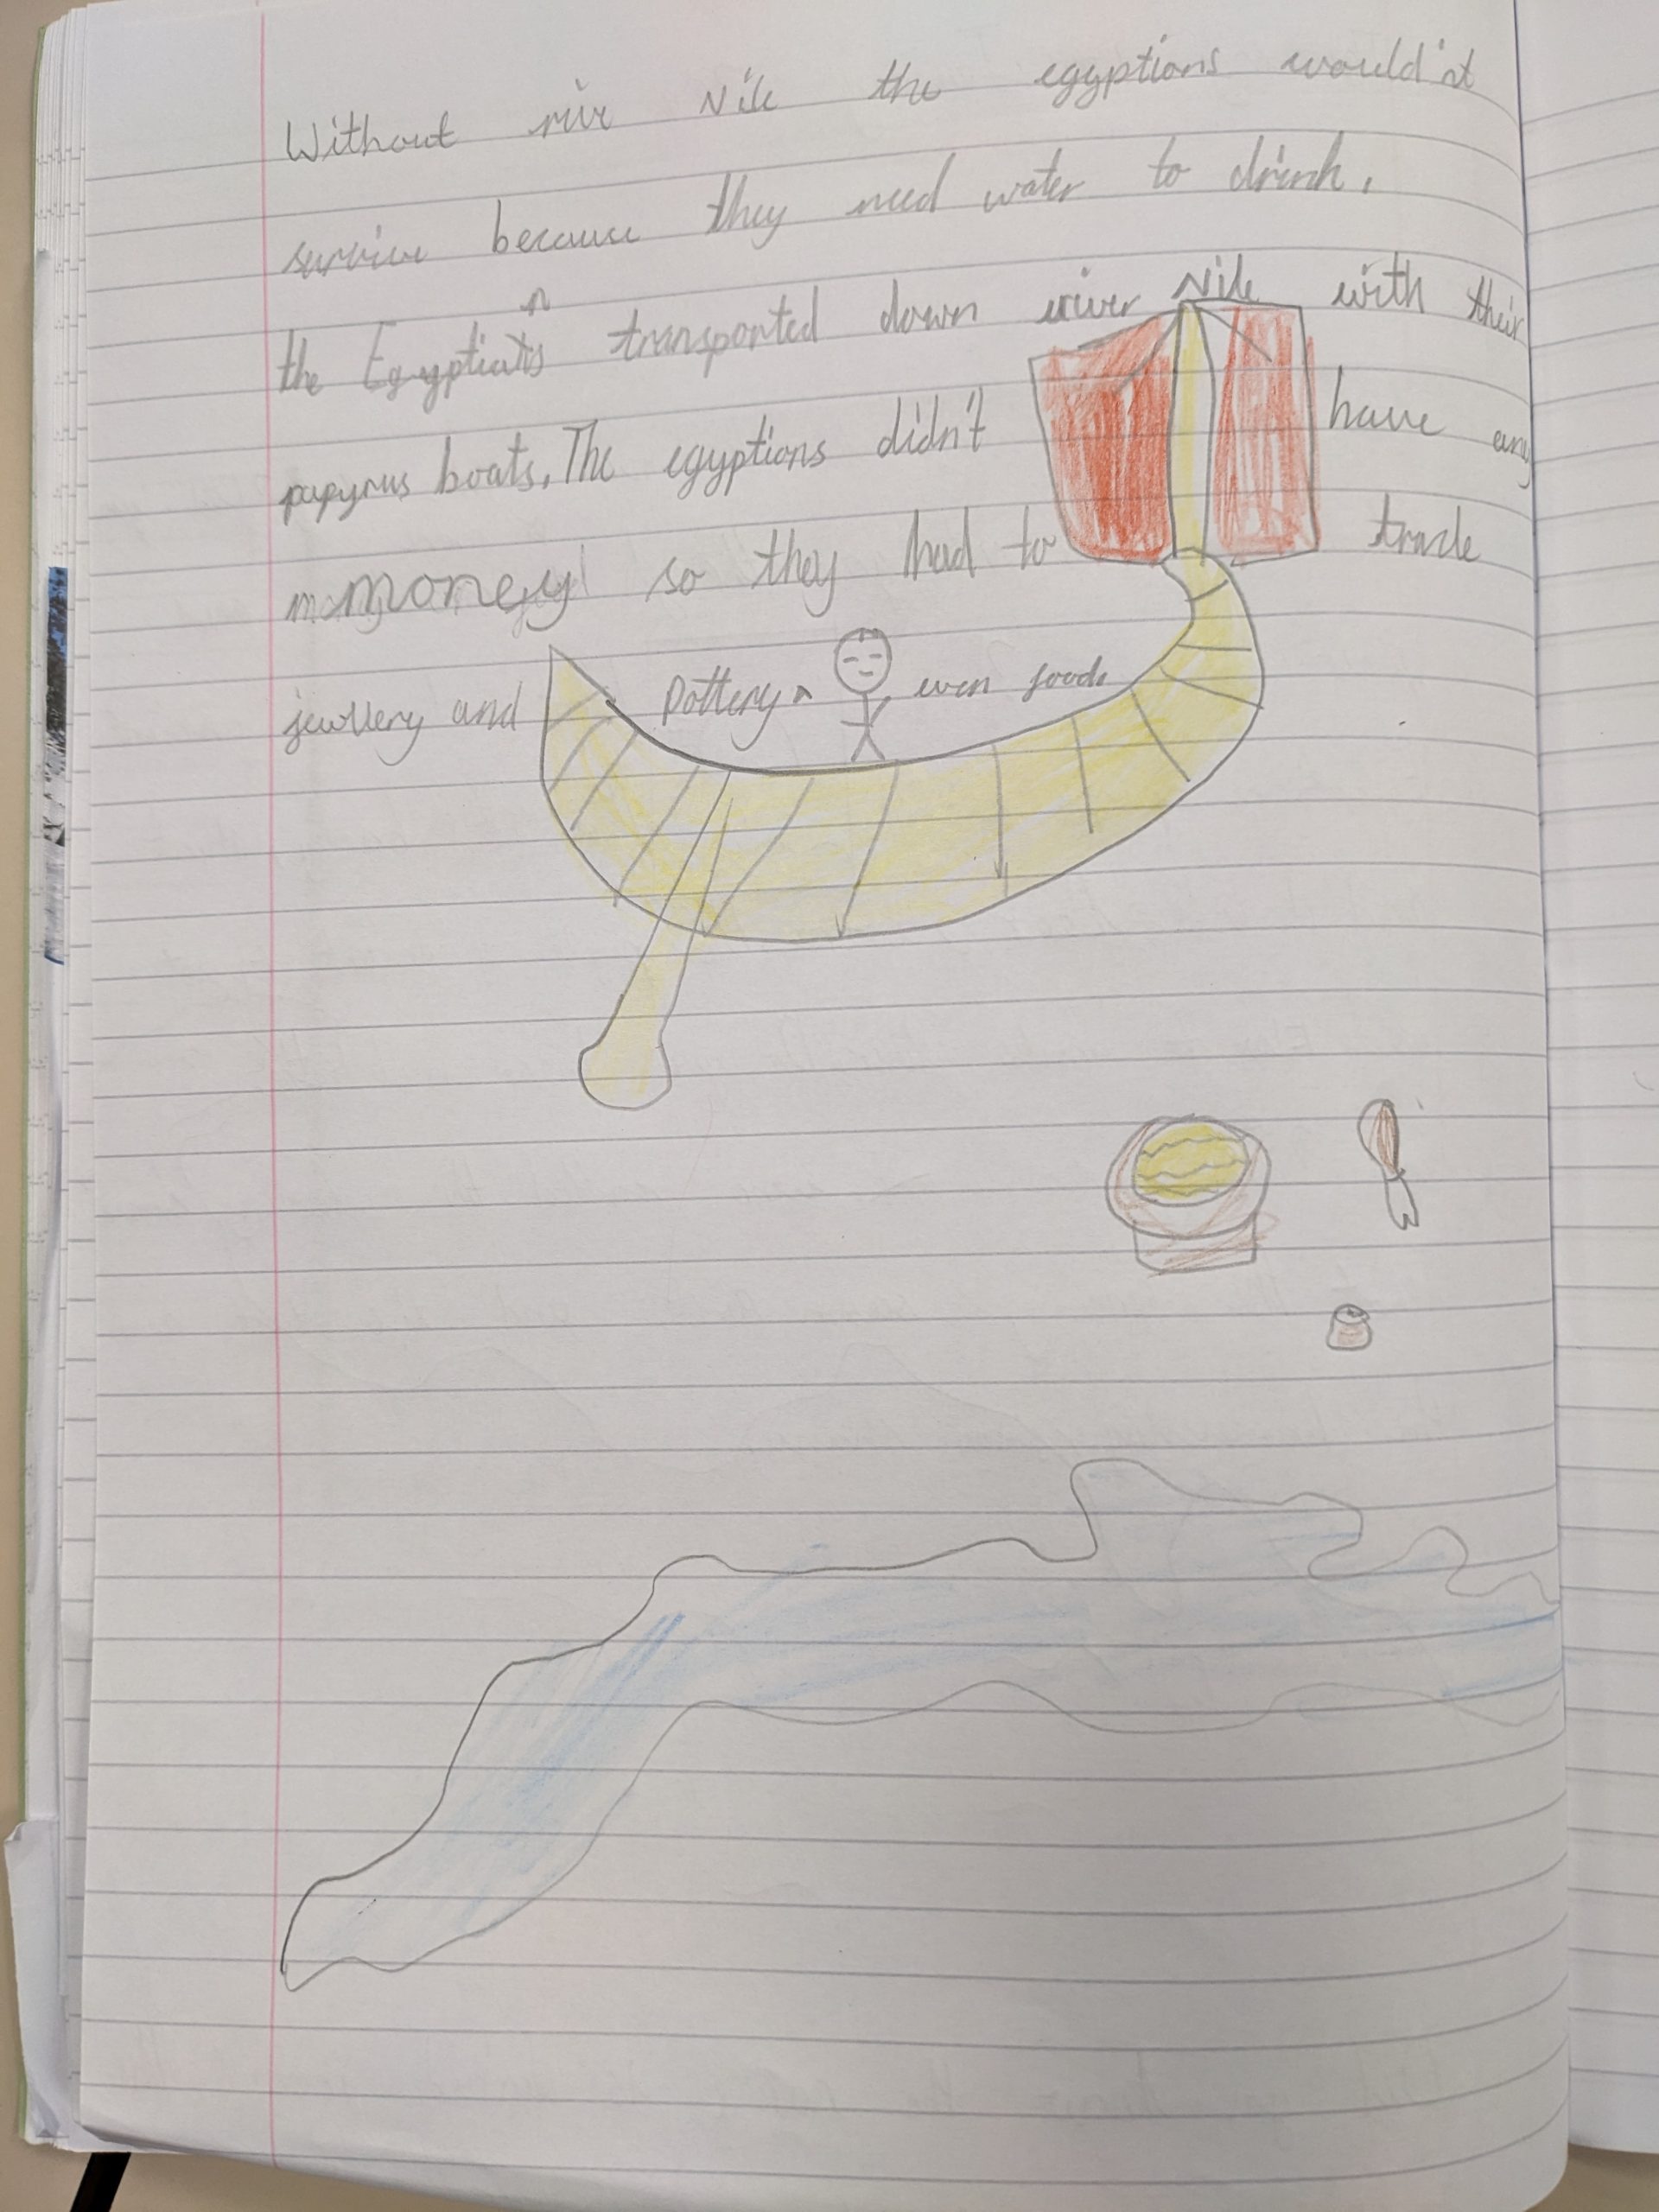 Without rivr Nile the egyptians would'nt
survive because they need water to drink.
the Egyptians transported down river Nile with their
papyrus boats. The egyptions didn't have any
money so they had to trade
jewllery and Pottery even foods